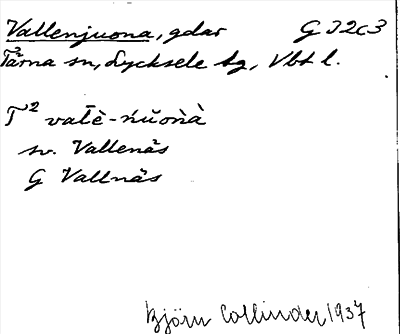 Vallenjuona, gdar G I2c3
Tärna sn, Lycksele lg, Vbt l.
T² vatè-ńŭoǹà
sv. Vallenäs
G Vallnäs
Björn Collinder 1937